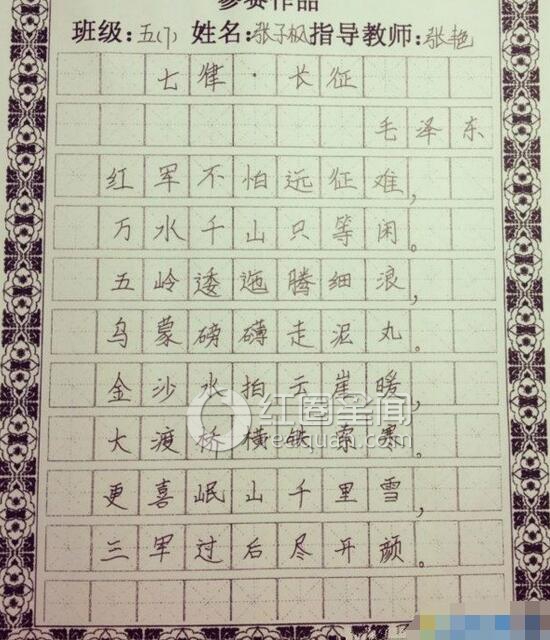 参赛作品
班级:五(7) 姓名:张子枫 指导教师:张艳
七律·长征
毛泽东
红军不怕远征难,
万水千山只等闲。
五岭逶迤腾细浪,
乌蒙磅礴走泥丸。
金沙水拍云崖暖,
红圈星闻
大渡桥横铁索寒。
redquan.com
更喜岷山千里雪,
三军过后尽开颜。